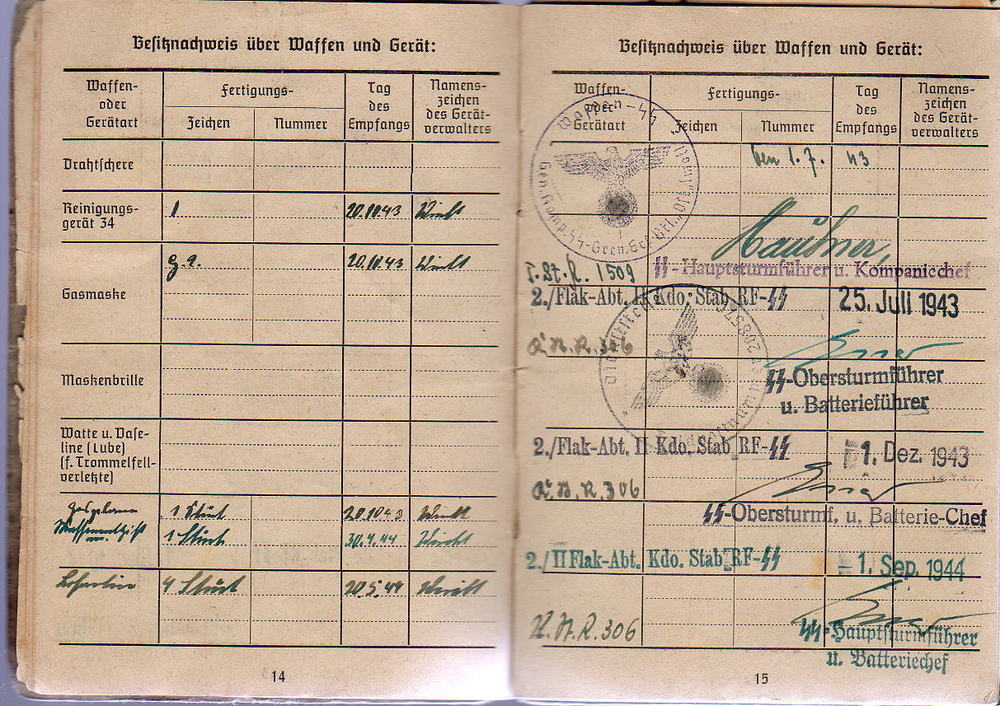 Besitznachweis über Waffen und Gerät:
Waffen- oder Gerätart
Fertigungs-
Zeichen
Nummer
Tag des Empfangs
Namens- zeichen des Gerät- verwalters
Drahtschere
Reinigungs-
gerät 34
1
20.10.43
Gasmaske
g.a.
20.10.43
Maskenbrille
Watte u. Vase-
line (Lube)
(f. Trommelfell-
verletzte)
1 Stück
20.10.43
1 Stück
30.4.44
4 Stück
20.5.44
14
Besitznachweis über Waffen und Gerät:
Waffen- oder Gerätart
Fertigungs-
Zeichen
Nummer
Tag des Empfangs
Namens- zeichen des Gerät- verwalters
Waffen-SS
den 1.7. 43
T.St.R. 1509
SS-Hauptsturmführer u. Kompaniechef
2./Flak-Abt. II Kdo. Stab RF-SS
25. Juli 1943
R. 306
SS-Obersturmführer
u. Batterieführer
2./Flak-Abt. II Kdo. Stab RF-SS
1. Dez. 1943
R. 306
SS-Obersturmf. u. Batterie-Chef
2./II Flak-Abt. Kdo. Stab RF-SS
1. Sep. 1944
R. 306
SS-Hauptsturmführer
u. Batteriechef
15